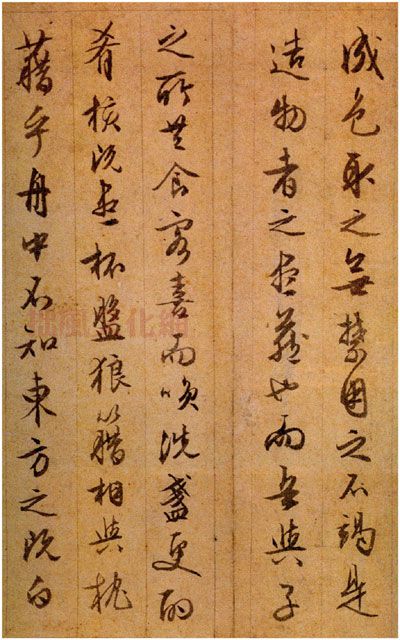 成色取之無禁用之不竭是
造物者之盡藏也而吾與子
之所共食客喜而咲洗盞更酌
肴核既盡杯盤狼籍相與枕
藉乎舟中不知東方之既白